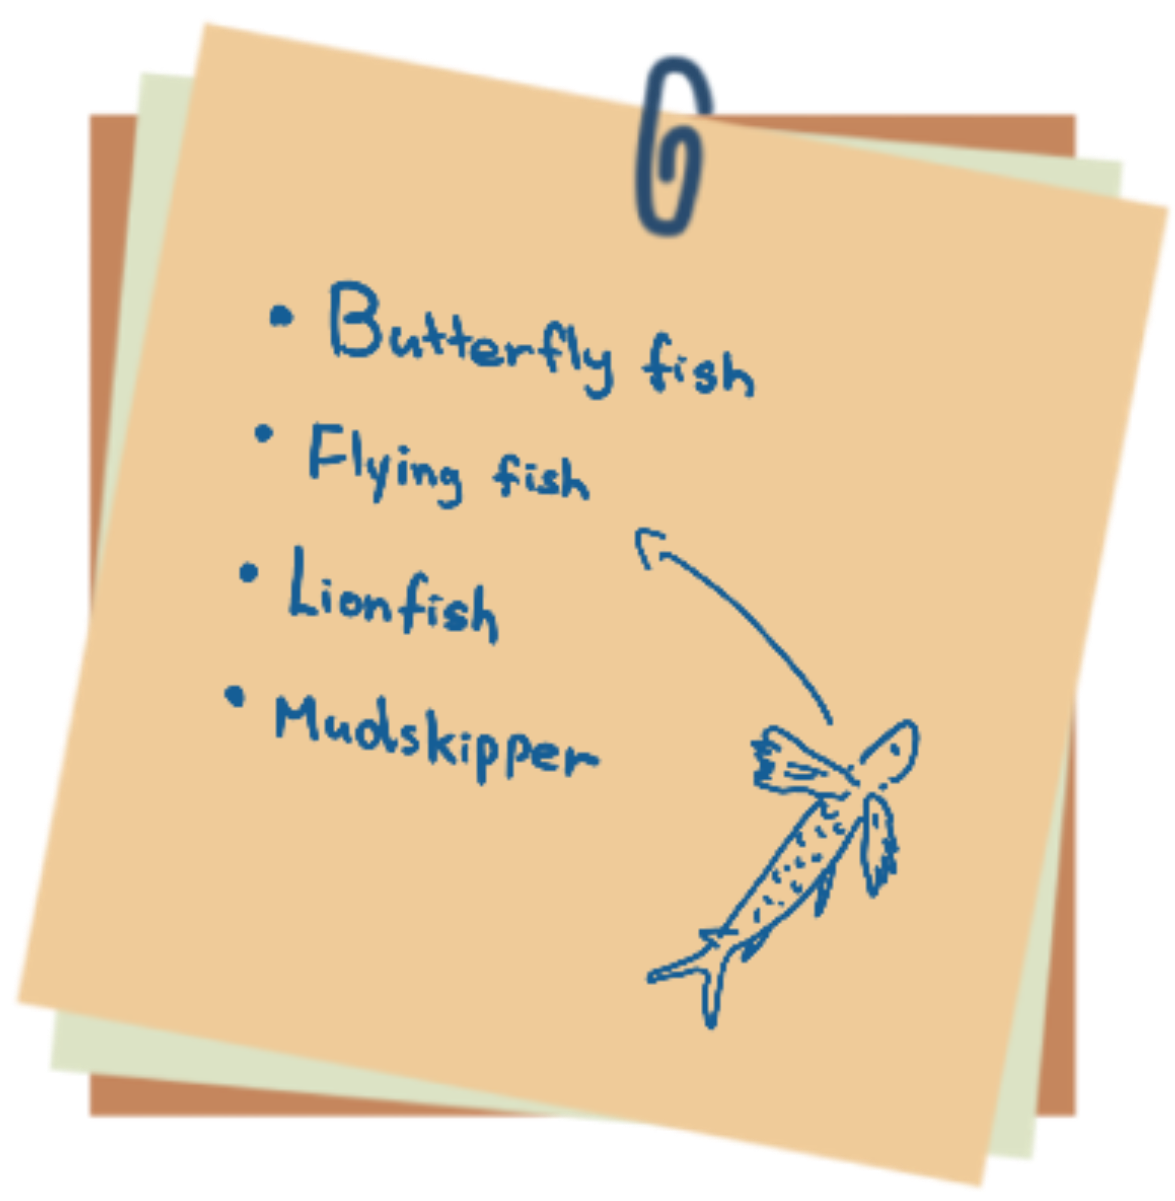 • Butterfly fish
• Flying fish
• Lionfish
• Mudskipper